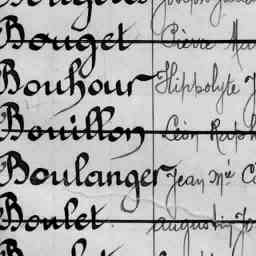 Bouget Pierre
Bonhour Hippolyte J
Bouillon Léon Raph
Boulanger Jean Mie C
Boulet Augustin Jo